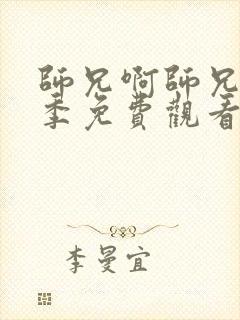 師兄啊師兄
季免費觀看
李曼宜